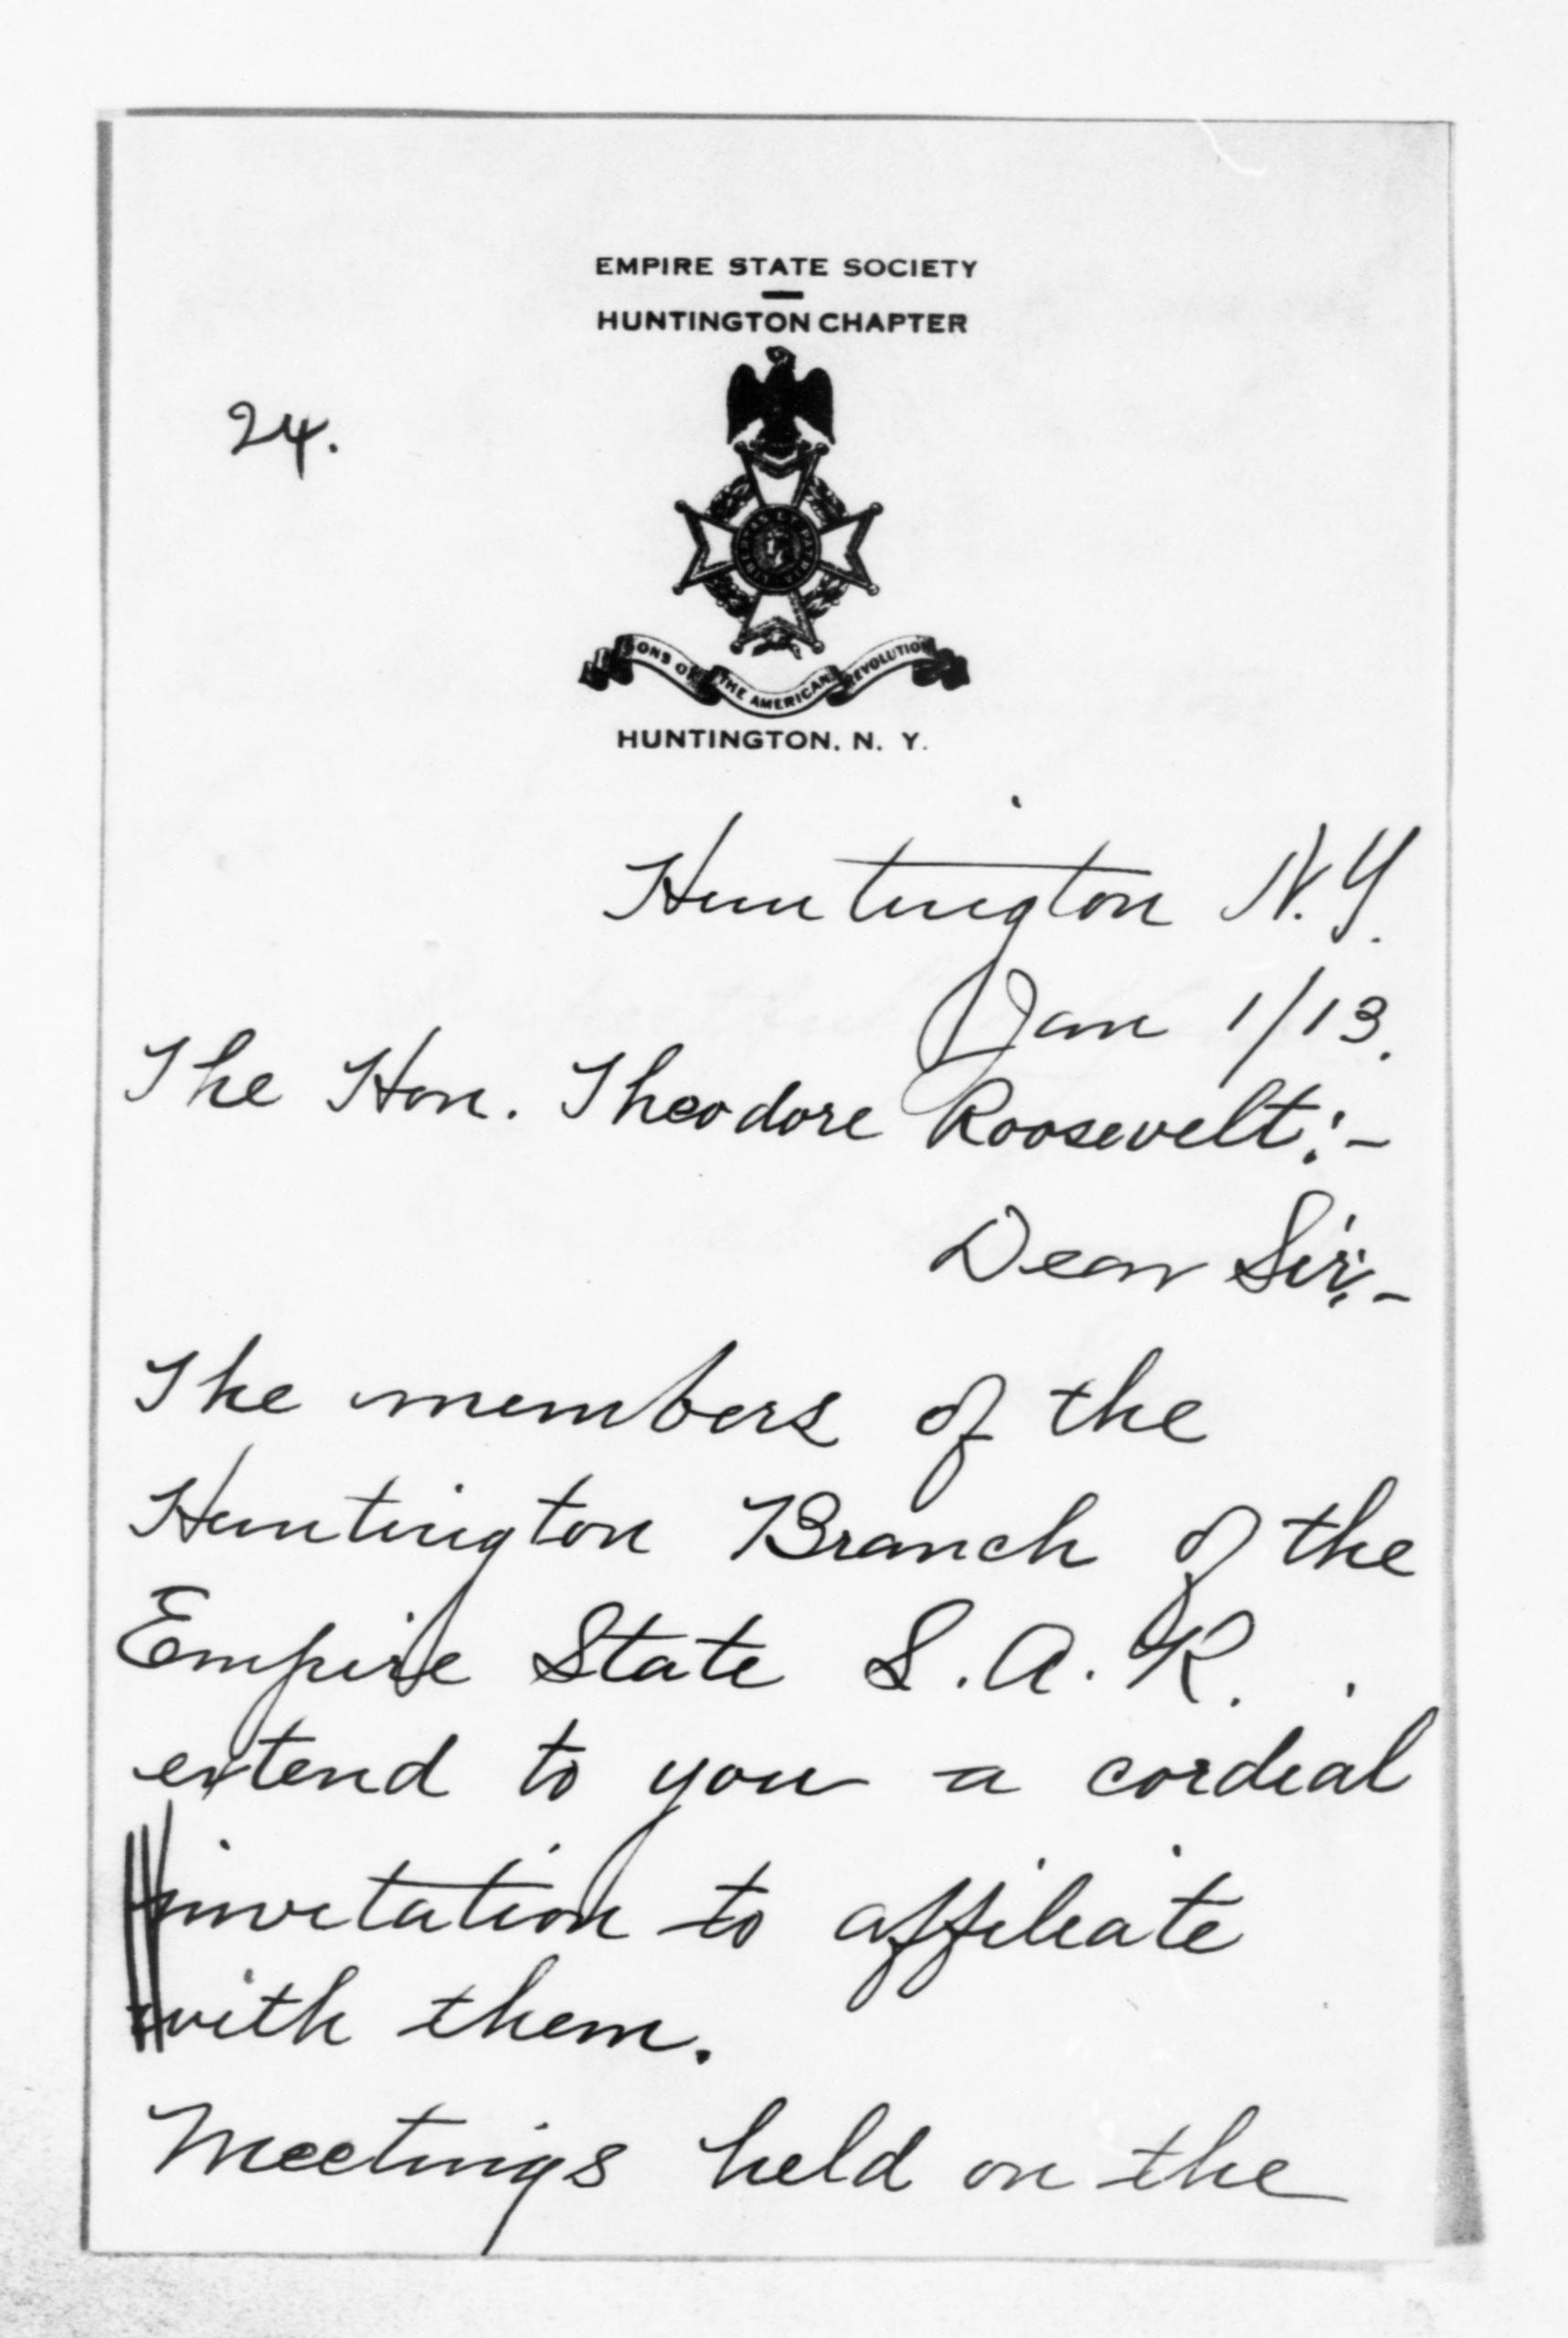 EMPIRE STATE SOCIETY
HUNTINGTON CHAPTER
24.
LIBERTAS ET PATRIA
SONS OF THE AMERICAN REVOLUTION
HUNTINGTON, N. Y.
Huntington N.Y.
Jan 1/13.
The Hon. Theodore Roosevelt:-
Dear Sir:-
The members of the
Huntington Branch of the
Empire State S.A.R.
extend to you a cordial
invitation to affiliate
with them.
Meetings held on the